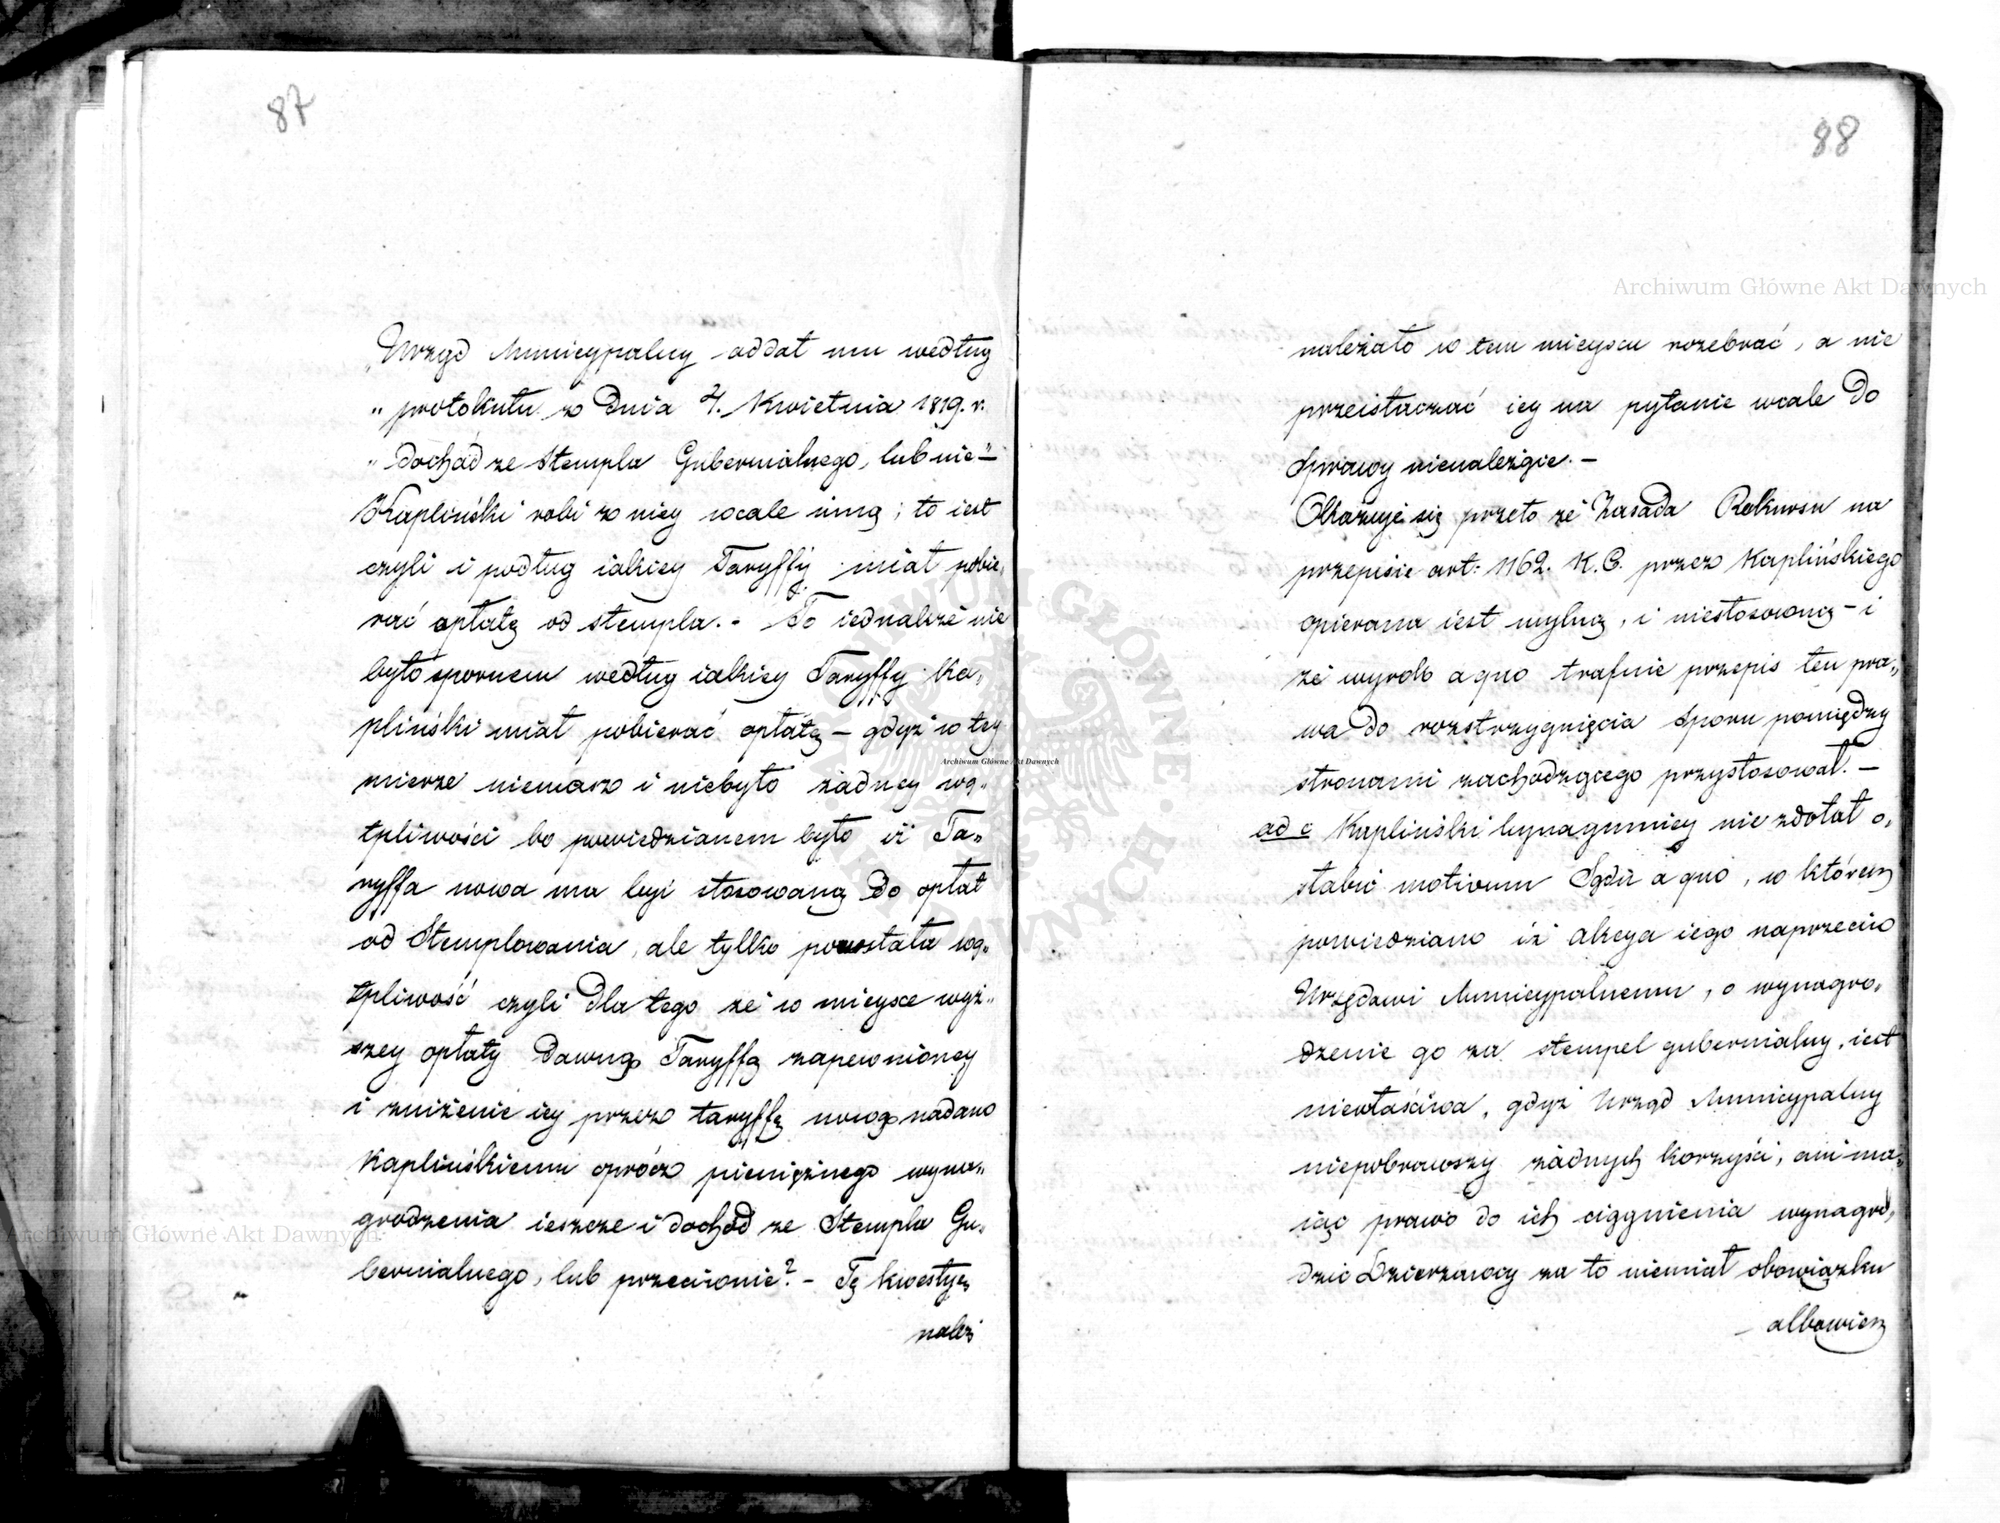 87
„Urząd Municypalny oddał mu według
„protokułu z Dnia 7. Kwietnia 1819. r.
„Dochod ze Stempla Gubernialnego, lub nie"–
Kapliński robi z niey wcale inną; to iest
czyli i podług iakiey Taryffy miał pobie„
rać opłatę od stempla. – To iednakże nie
było spornem według iakiey Taryffy Ka„
pliński miał pobierać opłatę – gdyż w tey
mierze niemasz i niebyło żadney wą„
tpliwości bo powiedzianem było iż Ta„
ryffa nowa ma byi stosowaną do opłat
od Stemplowania, ale tylko powstała wą„
tpliwość czyli dla tego że w mieysce wyż„
szey opłaty dawną Taryffą zapewnioney
i zniżenie iey przez taryffę nową nadano
Kaplińskiemu oprócz pieniężnego wyna„
grodzenia ieszcze i dochod ze Stempla Gu„
bernialnego, lub przeciwnie? – Tę kwestyę
należ
88
należało w tem mieyscu rozebrać, a nie
przeistaczać iey na pytanie wcale do
Sprawy nienależące. –
Okazuje się przeto że Zasada Rekursu na
przepisie art: 1162. K. C. przez Kaplińskiego
opierana iest mylną, i niestosowną – i
że wyrok a quo trafnie przepis ten pra„
wa do rozstrzygnięcia Sporu pomiędzy
stronami zachodzącego przystosował. –
ad c Kapliński bynaymniey nie zdołał o„
słabić motivum Sądu a quo, w którem
powiedziano iż akcya iego naprzeciw
Urzędowi Municypalnemu, o wynagro„
dzenie go za stempel gubernialny, iest
niewłaściwa, gdyż Urząd Municypalny
niepobrawszy żadnych korzyści, ani ma„
iąc prawo do ich ciągnienia wynagro„
dzić Dzierżawcy za to niemiał obowiązku
albowiem
Archiwum Główne Akt Dawnych
Archiwum Główne Akt Dawnych
Archiwum Główne Akt Dawnych
ARCHIWUM GŁÓWNE AKT DAWNYCH